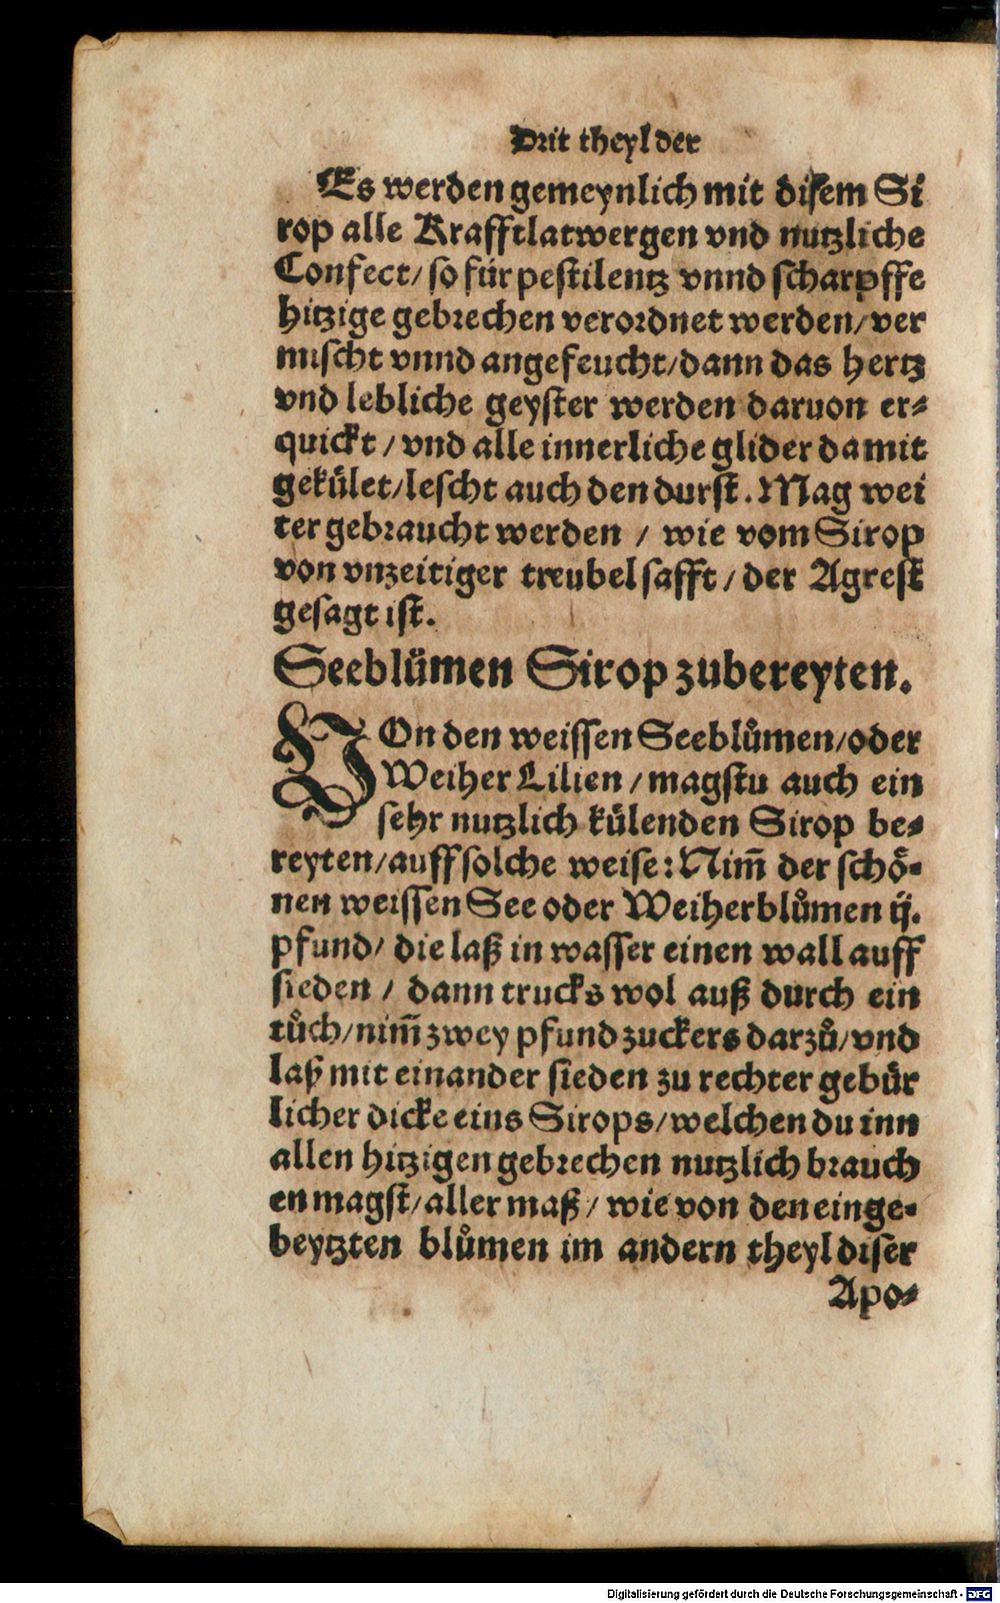 Drit theyl der
Es werden gemeynlich mit disem Si
rop alle Krafftlatwergen vnd nutzliche
Confect/ so für pestilentz vnnd scharpffe
hitzige gebrechen verordnet werden/ ver
mischt vnnd angefeucht/ dann das hertz
vnd lebliche geyster werden daruon er⸗
quickt / vnd alle innerliche glider damit
gekület/ lescht auch den durst. Mag wei
ter gebraucht werden / wie vom Sirop
von vnzeitiger treubel safft / der Agrest
gesagt ist.
Seeblümen Sirop zubereyten.
VOn den weissen Seeblůmen/ oder
Weiher Lilien / magstu auch ein
sehr nutzlich külenden Sirop be⸗
reyten/ auff solche weise: Nim̃ der schö⸗
nen weissen See oder Weiherblůmen ij.
pfund/ die laß in wasser einen wall auff
sieden / dann trucks wol auß durch ein
tůch/ nim̃ zwey pfund zuckers darzů/ vnd
laß mit einander sieden zu rechter gebür
licher dicke eins Sirops/ welchen du inn
allen hitzigen gebrechen nutzlich brauch
en magst/ aller maß / wie von den einge⸗
beytzten blůmen im andern theyl diser
Apo⸗
Digitalisierung gefördert durch die Deutsche Forschungsgemeinschaft - DFG